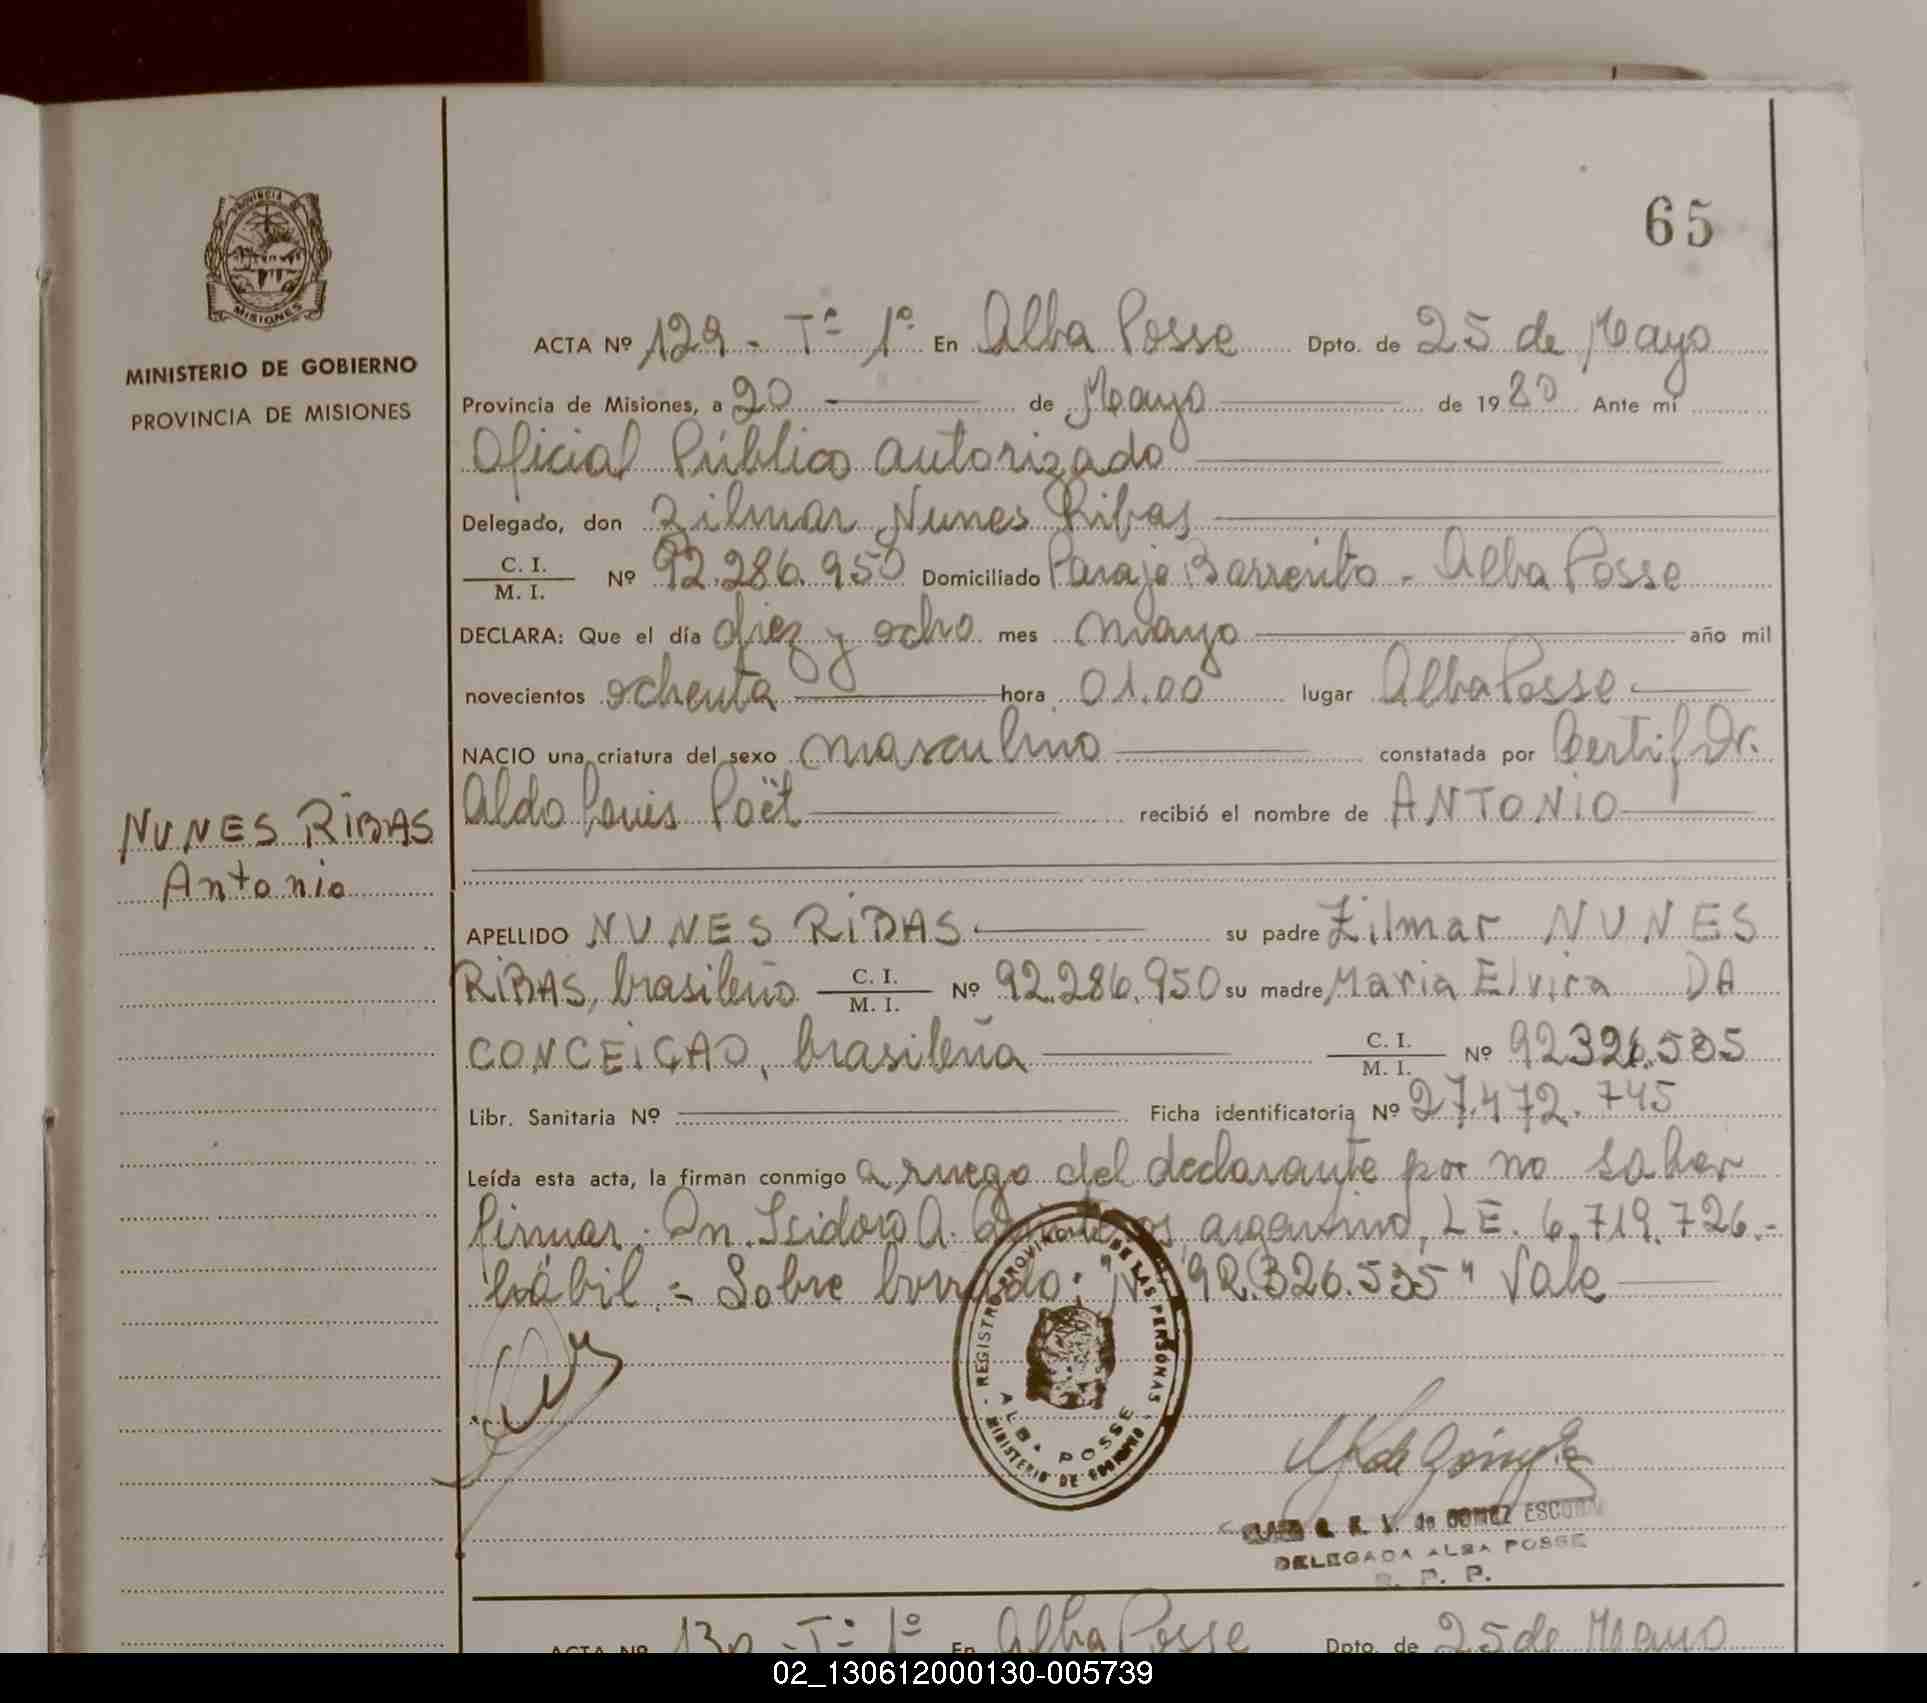 65
PROVINCIA DE
MISIONES
MINISTERIO DE GOBIERNO
PROVINCIA DE MISIONES
NUNES RIBAS
Antonio
ACTA Nº 129 - Tº 1º En Alba Posse Dpto. de 25 de Mayo
Provincia de Misiones, a 20 de Mayo de 1980 Ante mí
Oficial Público autorizado
Delegado, don Zilmar Nunes Ribas
C. I. / M. I. Nº 92.286.950 Domiciliado Paraje Barrerito - Alba Posse
DECLARA: Que el día diez y ocho mes mayo año mil
novecientos ochenta hora 01.00 lugar Alba Posse
NACIO una criatura del sexo masculino constatada por Certif Dr.
Aldo Luis Poët recibió el nombre de ANTONIO
APELLIDO NUNES RIBAS su padre Zilmar NUNES
RIBAS, brasileño C. I. / M. I. Nº 92.286.950 su madre Maria Elvira DA
CONCEIÇAO, brasileña C. I. / M. I. Nº 92.326.535
Libr. Sanitaria Nº Ficha identificatoria Nº 27.472.745
Leída esta acta, la firman conmigo a ruego del declarante por no saber
firmar. Dn. Isidoro A. argentino, L E. 6.719.726.-
hábil.= Sobre borrado: "Nº 92.326.535" Vale
REGISTRO PROVINCIAL DE LAS PERSONAS
ALBA POSSE
MINISTERIO DE GOBIERNO
de GOMEZ ESCOBAR
DELEGADA ALBA POSSE
R. P. P.
ACTA Nº 130 - Tº 1º En Alba Posse Dpto. de 25 de Mayo
02_130612000130-005739